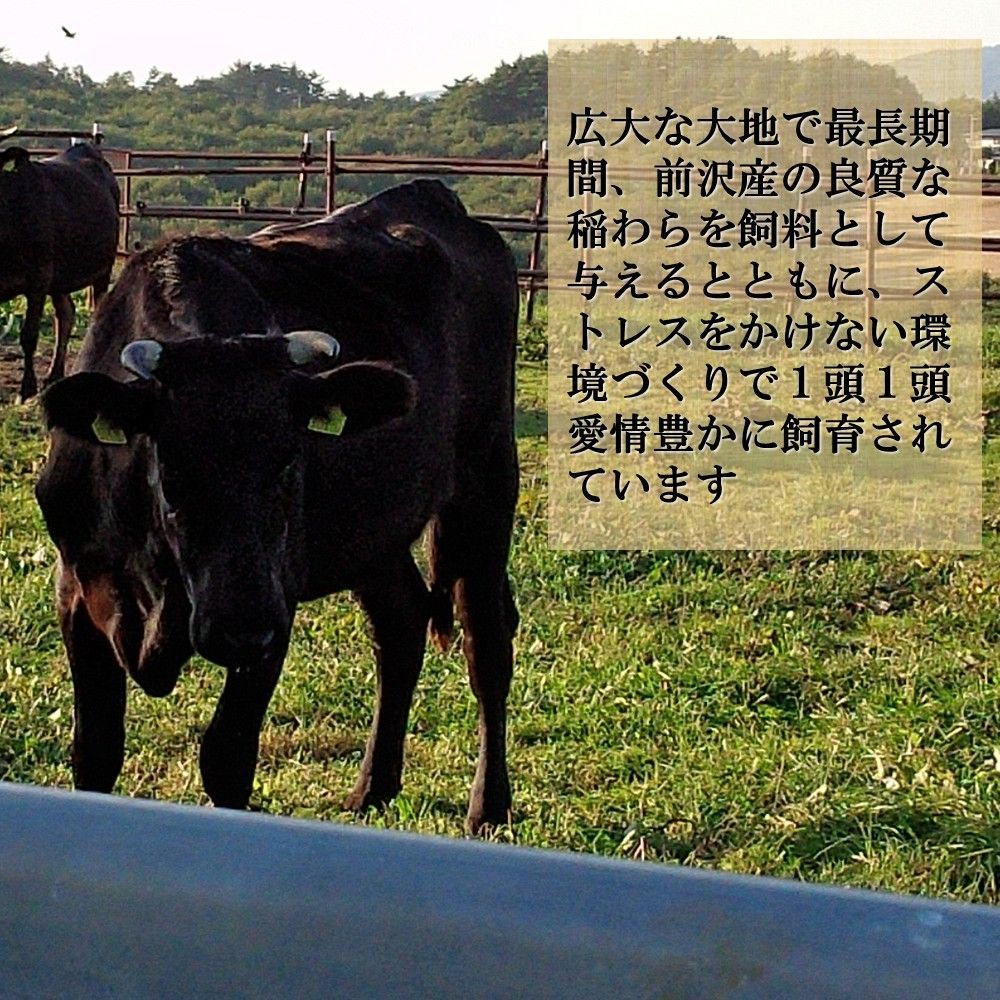 広大な大地で最長期
間、前沢産の良質な
稲わらを飼料として
与えるとともに、ス
トレスをかけない環
境づくりで１頭１頭
愛情豊かに飼育され
ています